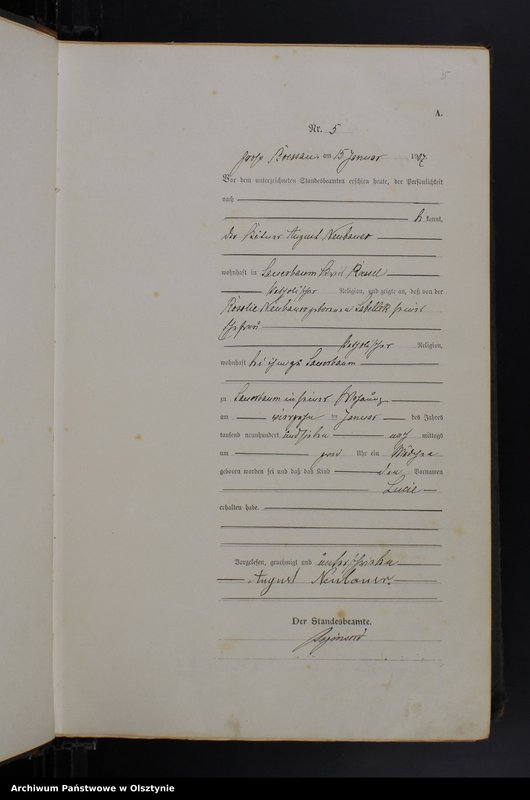 5
A.
Nr. 5
Groß Bössau, am 15 Januar 1907.
Vor dem unterzeichneten Standesbeamten erschien heute, der Persönlichkeit
nach
kannt,
der August Neubauer
wohnhaft in Sauerbaum Kreis Roessel
katholischer Religion, und zeigte an, daß von der
Rosalie Neubauer geborenen seiner
Ehefrau
katholischer Religion,
wohnhaft bei ihm zu Sauerbaum
zu Sauerbaum in seiner Wohnung
am vierzehn ten Januar des Jahres
tausend neunhundert und sieben nach mittags
um Uhr ein Mädchen
geboren worden sei und daß das Kind den Vornamen
Lucie
erhalten habe.
Vorgelesen, genehmigt und unterschrieben
August Neubauer.
Der Standesbeamte.
Archiwum Państwowe w Olsztynie